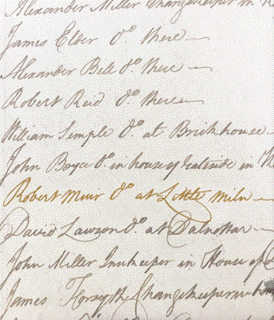 Alexander Miller Changekeeper in
James Elder do. there
Alexander Bell do. there
Robert Reid do. there
William Semple do. at Brickhouse
John Boyce do. in house of
Robert Muir do. at Little Miln
David Lawson do. at Dalnottar
John Miller Innkeeper in House of
James Forsyth Changekeeper in